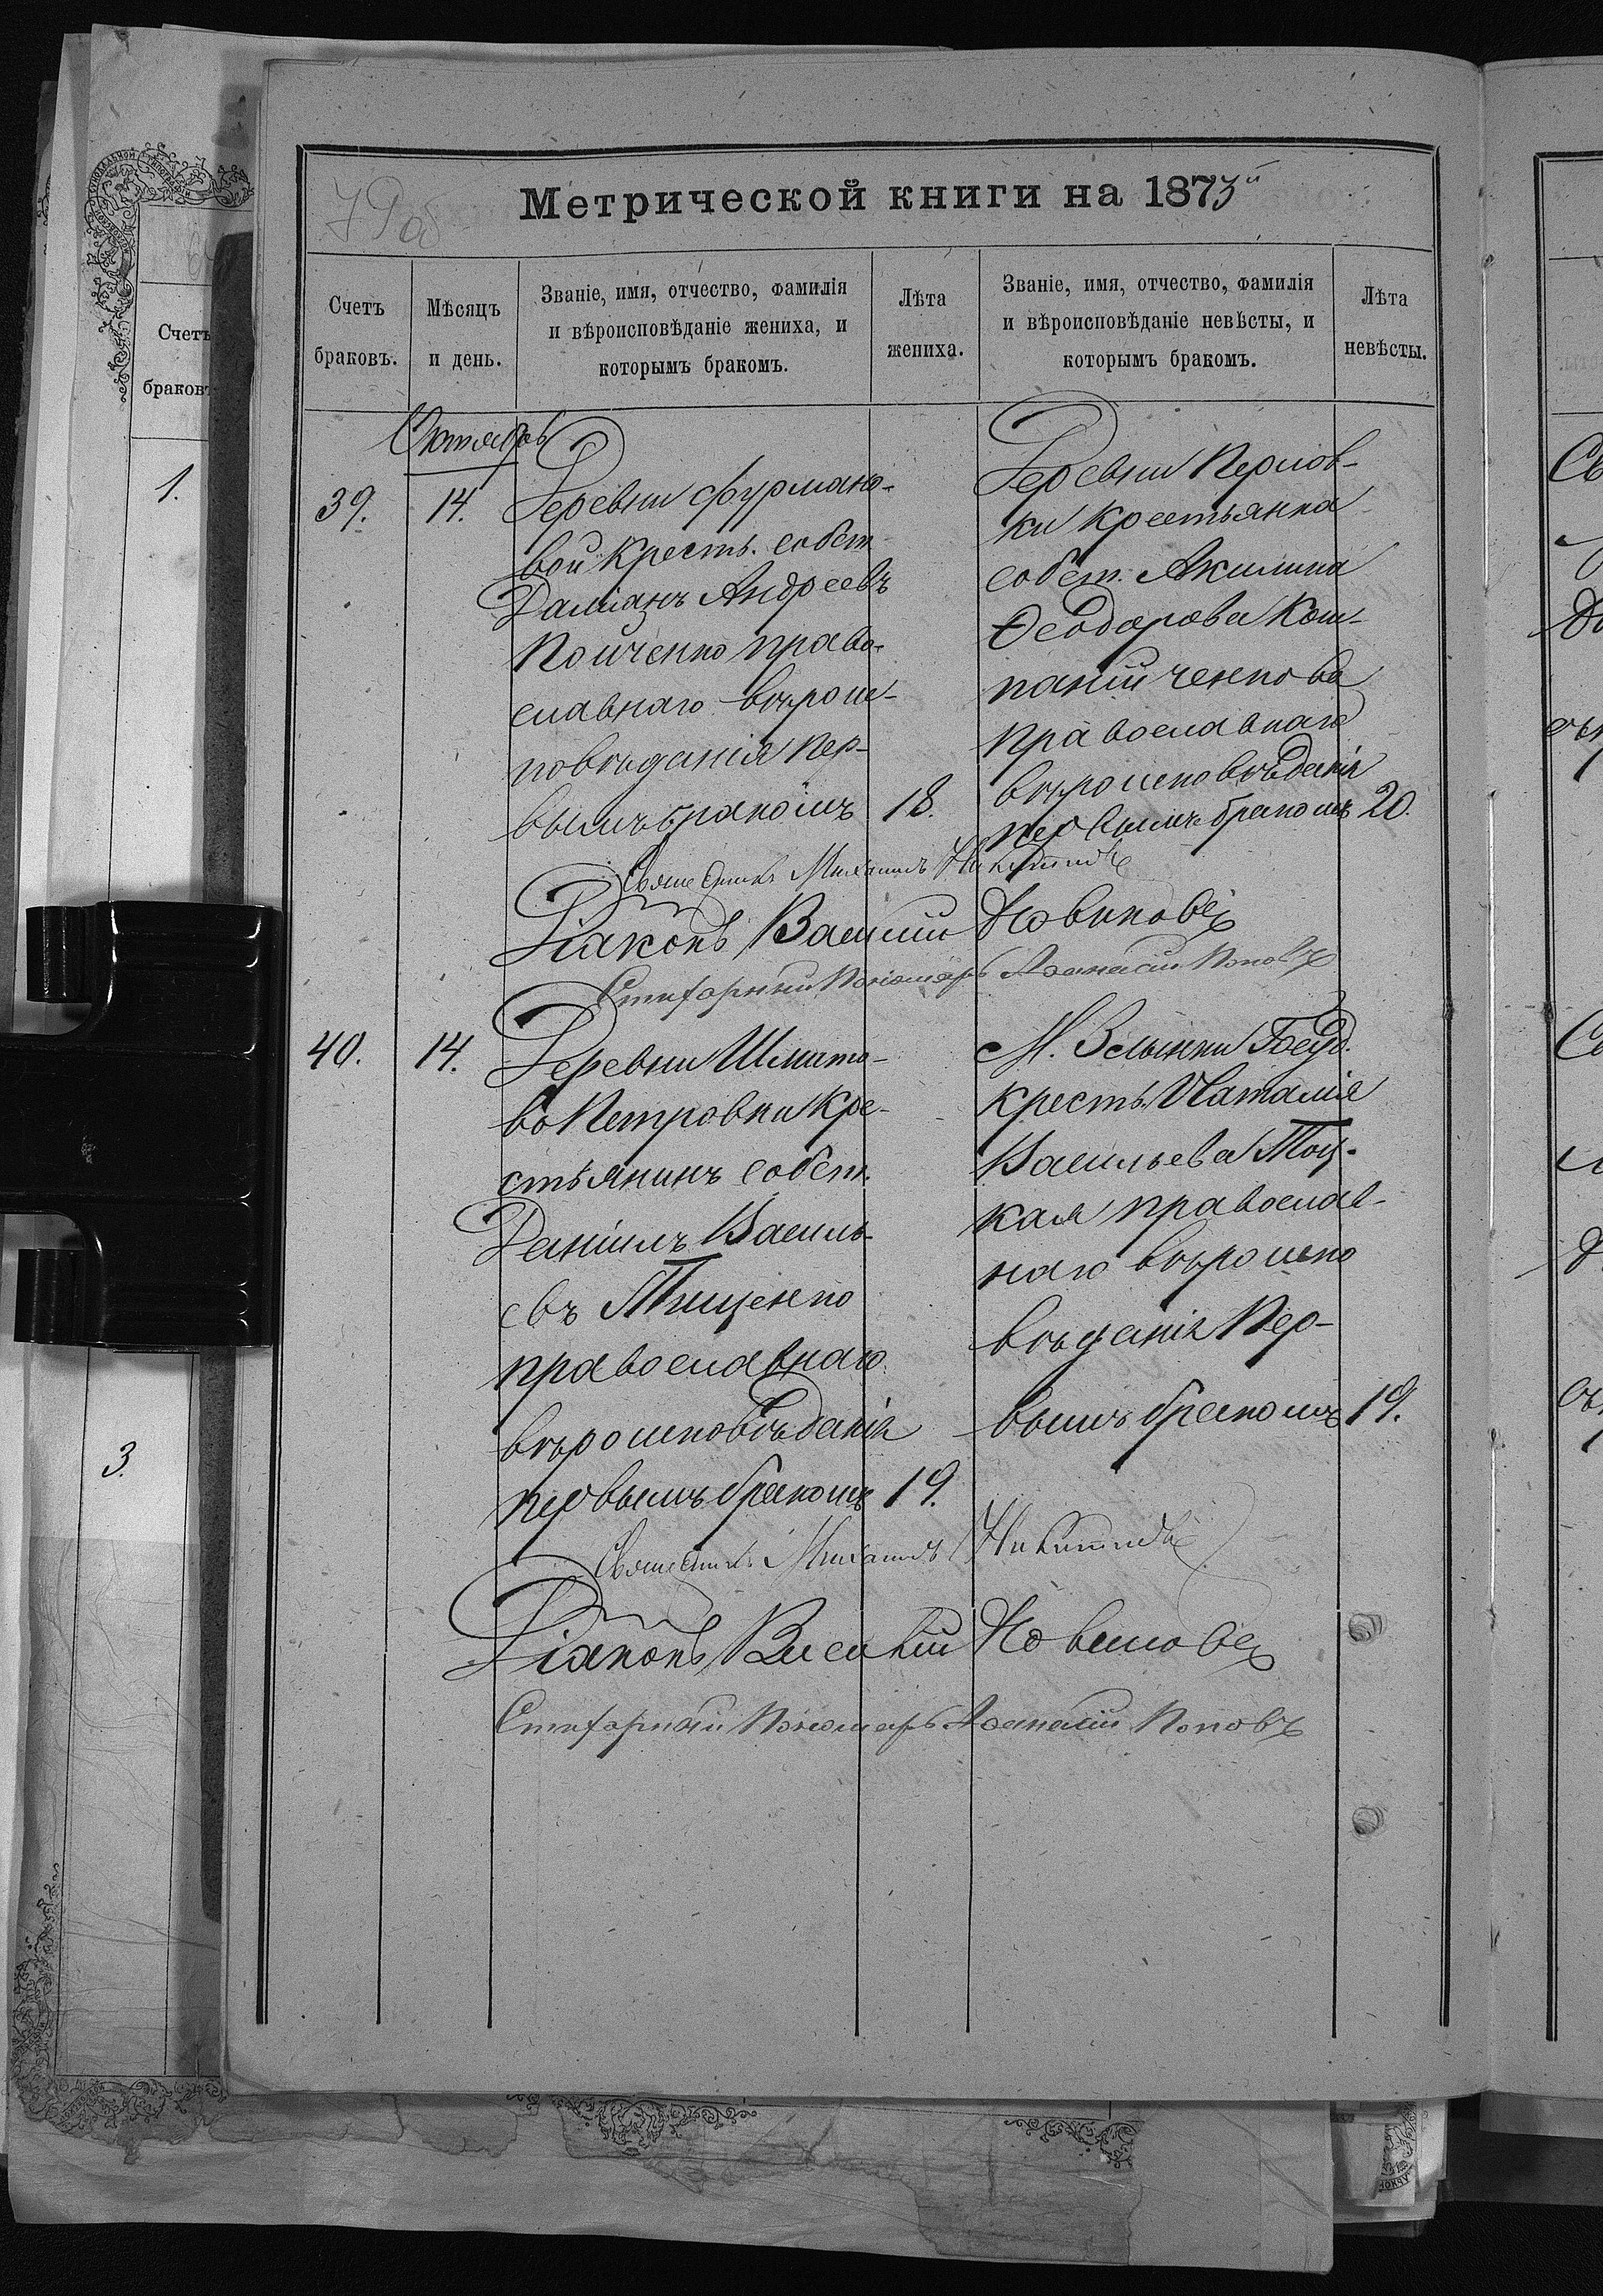 79 об
Метрической книги на 1873й
Счетъ браковъ.
Мѣсяцъ и день.
Званіе, имя, отчество, фамилія
и вѣроисповѣданіе жениха, и
которымъ бракомъ.
Лѣта жениха.
Званіе, имя, отчество, фамилія
и вѣроисповѣданіе невѣсты, и
которымъ бракомъ.
Лѣта невѣсты.
Октябрь
39.
14.
Деревни Фурмано-
вой Кресть. собст.
Даміанъ Андреевъ
право-
славнаго вѣроис-
повѣданія пер-
вымъ бракомъ
18.
Деревни Перлов-
ки Крестьянка
собст. Акилина
Ѳеодорова Ком-
панійченкова
православнаго
вѣроисповѣданія
первымъ бракомъ
20.
Священникъ Михаилъ Никитинъ
Діаконъ Василій Новиковъ
Стихарный Пономарь Аѳанасій Поповъ
40.
14.
Деревни Шмато-
во Петровки Кре-
стьянинъ собст.
Даніилъ Василь-
евъ Тищенко
православнаго
вѣроисповѣданія
первымъ бракомъ
19.
М. Злынки Госуд.
кресть. Наталія
Васильева Тоц-
кая православ-
наго вѣроиспо
вѣданія Пер-
вымъ бракомъ
19.
Священникъ Михаилъ Никитинъ
Діаконъ Василій Новиковъ
Стихарный Пономарь Аѳанасій Поповъ
Счетъ
браковъ
1.
3.